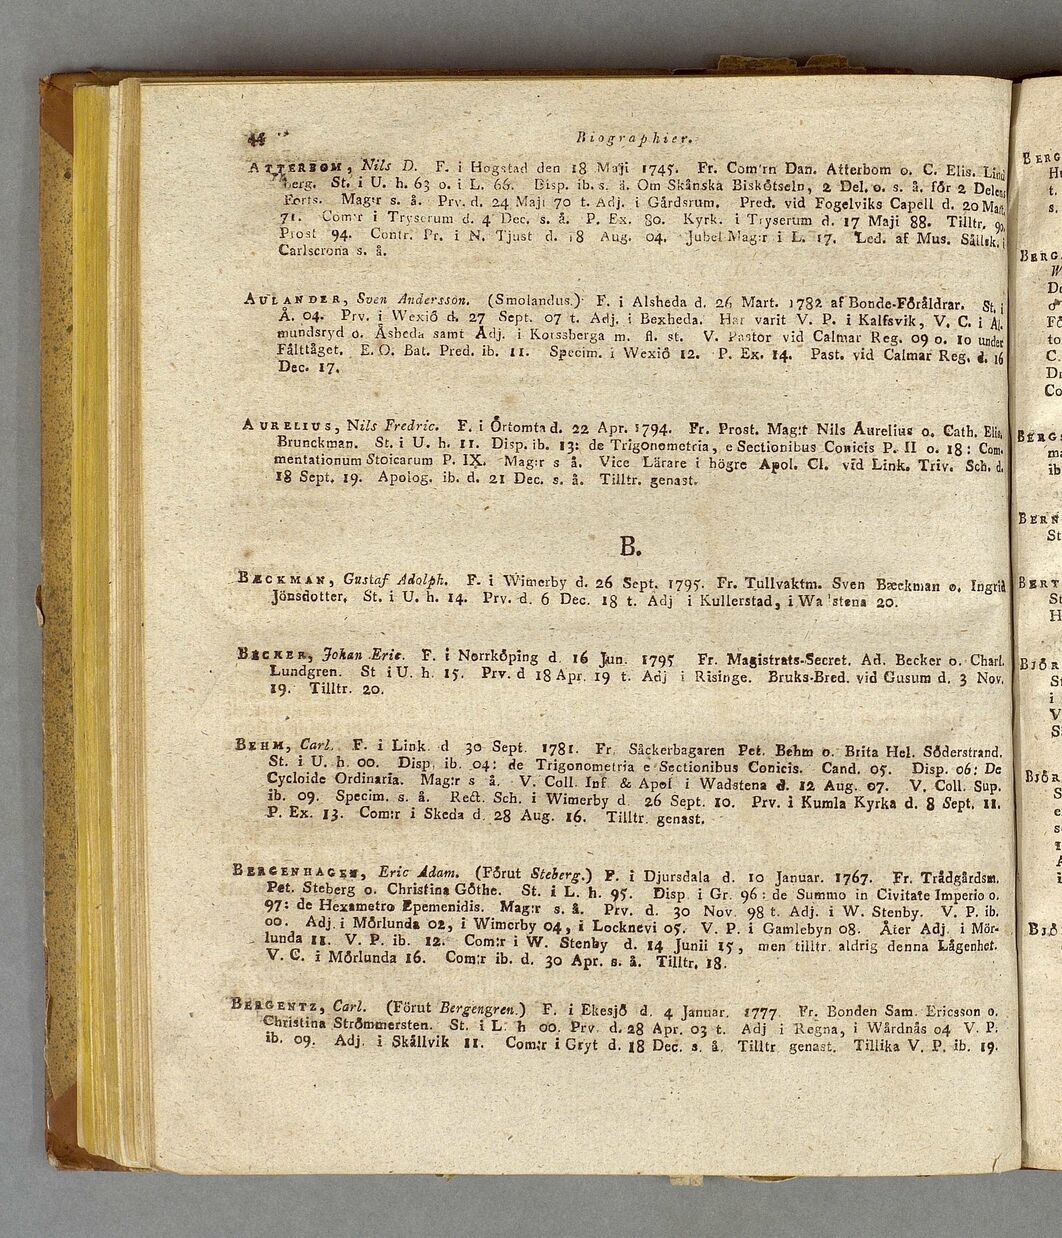 44
Biographier.
ATTERBOM, Nils D. F. i Hogstad den 18 Maji 1745. Fr. Com:rn Dan. Atterbom o. C. Elis. Lind
berg. St. i U. h. 63 o. i L. 66. Disp. ib. s. å. Om Skånska Biskötseln, 2 Del. o. s. å. för 2 Delens
Forts. Mag:r s. å. Prv. d. 24 Maji 70 t. Adj. i Gårdsrum. Pred. vid Fogelviks Capell d. 20 Mart.
71. Com:r i Tryserum d. 4 Dec. s. å. P. Ex. 80. Kyrk. i Tryserum d. 17 Maji 88. Tilltr. 90.
Prost 94. Contr. Pr. i N. Tjust d. 18 Aug. 04. Jubel Mag:r i L. 17. Led. af Mus. Sällsk. i
Carlscrona s. å.
AULANDER, Sven Andersson. (Smolandus.) F. i Alsheda d. 26 Mart. 1782 af Bonde-Föräldrar. St. i
Å. 04. Prv. i Wexiö d. 27 Sept. 07 t. Adj. i Bexheda. Har varit V. P. i Kalfsvik, V. C. i Al-
mundsryd o. Åsheda samt Adj. i Korssberga m. fl. st. V. Pastor vid Calmar Reg. 09 o. 10 under
Fälttåget. E. O. Bat. Pred. ib. 11. Specim. i Wexiö 12. P. Ex. 14. Past. vid Calmar Reg. d. 16
Dec. 17.
AURELIUS, Nils Fredric. F. i Örtomta d. 22 Apr. 1794. Fr. Prost. Mag:r Nils Aurelius o. Cath. Elis.
Brunckman. St. i U. h. 11. Disp. ib. 13: de Trigonometria, e Sectionibus Conicis P. II o. 18: Com-
mentationum Stoicarum P. IX. Mag:r s å. Vice Lärare i högre Apol. Cl. vid Link. Triv. Sch. d.
18 Sept. 19. Apolog. ib. d. 21 Dec. s. å. Tilltr. genast.
B.
BÆCKMAN, Gustaf Adolph. F. i Wimerby d. 26 Sept. 1795. Fr. Tullvaktm. Sven Bæckman o. Ingrid
Jönsdotter. St. i U. h. 14. Prv. d. 6 Dec. 18 t. Adj i Kullerstad, i Wadstena 20.
BECKER, Johan Eric. F. i Norrköping d. 16 Jun. 1795 Fr. Magistrats-Secret. Ad. Becker o. Charl.
Lundgren. St i U. h. 15. Prv. d 18 Apr. 19 t. Adj i Risinge. Bruks-Pred. vid Gusum d. 3 Nov.
19. Tilltr. 20.
BEHM, Carl. F. i Link. d 30 Sept. 1781. Fr. Såckerbagaren Pet. Behm o. Brita Hel. Söderstrand.
St. i U. h. 00. Disp. ib. 04: de Trigonometria e Sectionibus Conicis. Cand. 05. Disp. 06: De
Cycloide Ordinaria. Mag:r s å. V. Coll. Inf & Apol i Wadstena d. 12 Aug. 07. V. Coll. Sup.
ib. 09. Specim. s. å. Rect. Sch. i Wimerby d. 26 Sept. 10. Prv. i Kumla Kyrka d. 8 Sept. 11.
P. Ex. 13. Com:r i Skeda d. 28 Aug. 16. Tilltr. genast.
BERGENHAGEN, Eric Adam. (Förut Steberg.) F. i Djursdala d. 10 Januar. 1767. Fr. Trädgårdsm.
Pet. Steberg o. Christina Göthe. St. i L. h. 95. Disp. i Gr. 96: de Summo in Civitate Imperio o.
97: de Hexametro Epemenidis. Mag:r s. å. Prv. d. 30 Nov. 98 t. Adj. i W. Stenby. V. P. ib.
00. Adj. i Mörlunda 02, i Wimerby 04, i Locknevi 05. V. P. i Gamlebyn 08. Åter Adj. i Mör-
lunda 11. V. P. ib. 12. Com:r i W. Stenby d. 14 Junii 15, men tilltr. aldrig denna Lägenhet.
V. C. i Mörlunda 16. Com:r ib. d. 30 Apr. s. å. Tilltr. 18.
BERGENTZ, Carl. (Förut Bergengren.) F. i Ekesjö d. 4 Januar. 1777. Fr. Bonden Sam. Ericsson o.
Christina Strömmersten. St. i L. h 00. Prv. d. 28 Apr. 03 t. Adj i Regna, i Wårdnäs 04 V. P.
ib. 09. Adj. i Skällvik 11. Com:r i Gryt d. 18 Dec. s. å. Tilltr. genast. Tillika V. P. ib. 19.